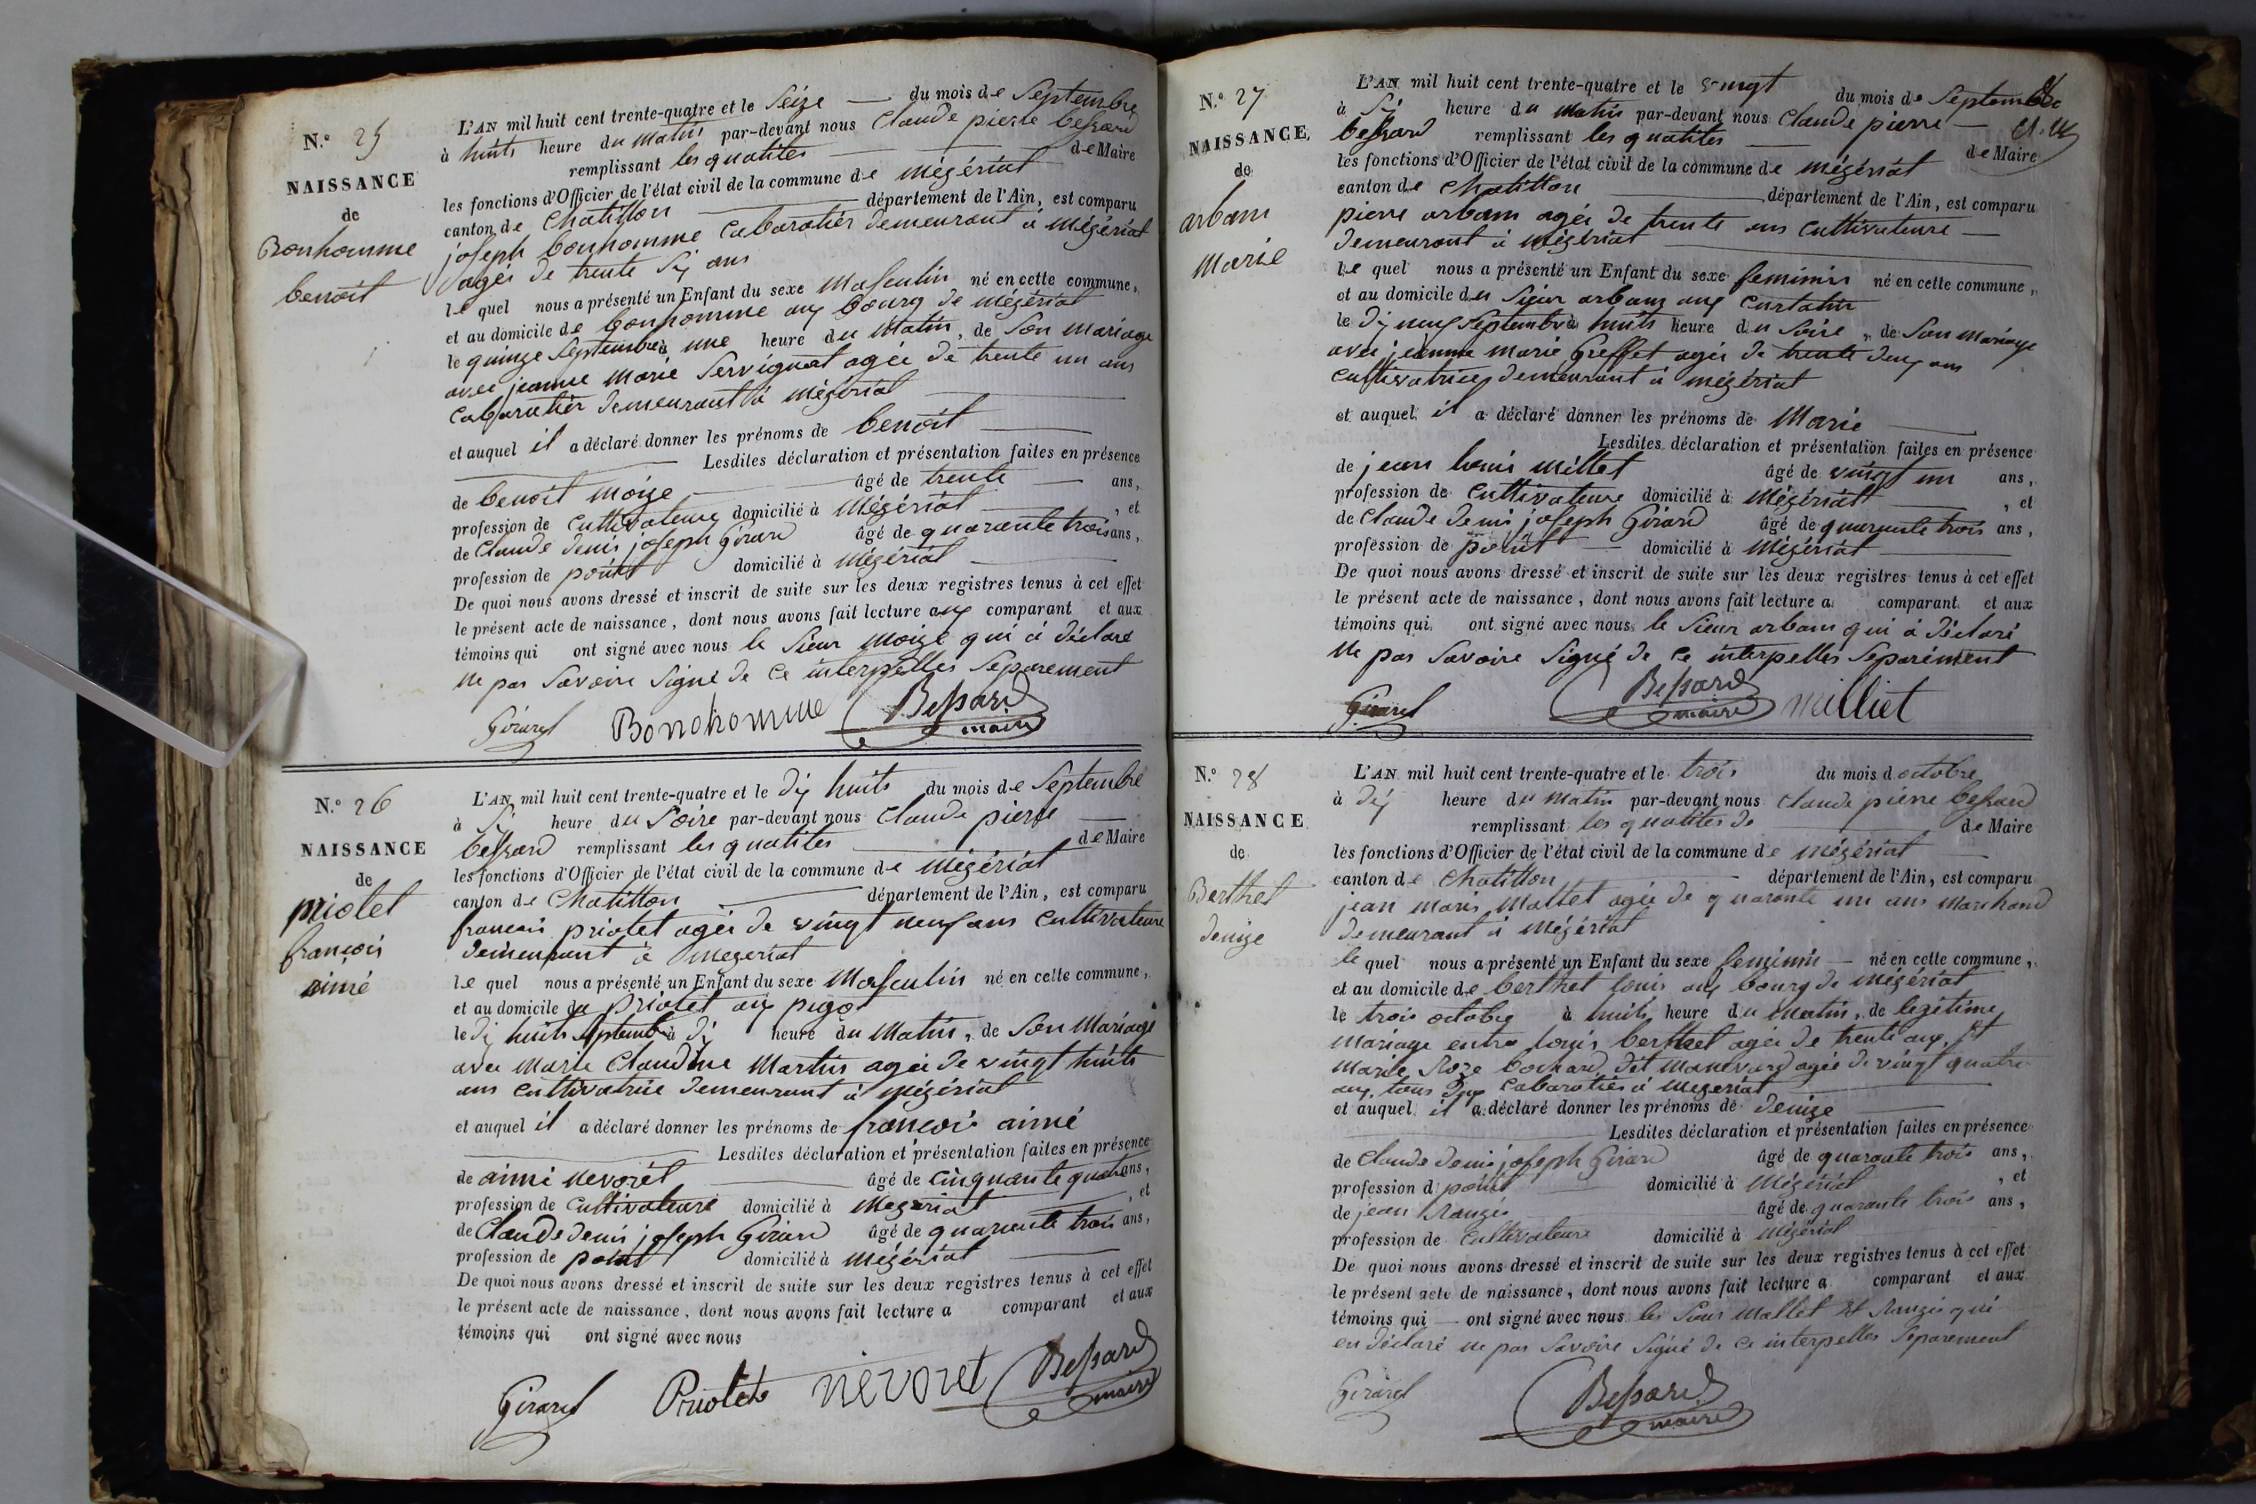 N.° 25
NAISSANCE
de
Bonhomme
benoit
L'AN mil huit cent trente-quatre et le Seize du mois de Septembre
à huits heure du Matin par-devant nous Claude pierre bessard
remplissant les qualités de Maire
les fonctions d'Officier de l'état civil de la commune de Mégériat
canton de Chatillon département de l'Ain, est comparu
joseph bonhomme Cabaratier demeurant à Mégériat
agés de trente Six ans
le quel nous a présenté un Enfant du sexe Masculin né en cette commune,
et au domicile de bonhomme aux bourg de Mégériat
le quinze Septembre à une heure du Matin, de Son mariage
avec jeanne Marie Servignat agée de trente un ans
Cabaratier demeurant à Mégériat
et auquel il a déclaré donner les prénoms de benoit
Lesdites déclaration et présentation faites en présence
de benoit Moize âgé de trente ans,
profession de Cultivateure domicilié à Mégériat, et
de Claude denis joseph Girard âgé de quarante trois ans,
profession de domicilié à Mégériat
De quoi nous avons dressé et inscrit de suite sur les deux registres tenus à cet effet
le présent acte de naissance, dont nous avons fait lecture aux comparant et aux
témoins qui ont signé avec nous le Sieur Moize qui à déclaré
ne pas Savoire Signé de ce interpelles Séparement
Girard Bonohomme Bessard
maire
N.° 26
NAISSANCE
de
priolet
françois
aimé
L'AN mil huit cent trente-quatre et le dix huits du mois de Septembre
à Six heure du Soire par-devant nous Claude pierre
bessard remplissant les qualités de Maire
les fonctions d'Officier de l'état civil de la commune de Mégériat
canton de Chatillon département de l'Ain, est comparu
françois priolet agés de vingt neuf ans Cultivateure
demeurant à Mégériat
le quel nous a présenté un Enfant du sexe Masculin né en cette commune,
et au domicile du Priolet aux
le dix huits Septembre à dix heure du Matin, de Son Mariage
avec Marie Claudine Martin agée de vingt huits
ans Cultivatrice demeurant à Mégériat
et auquel il a déclaré donner les prénoms de françois aimé
Lesdites déclaration et présentation faites en présence
de aimé nevoret âgé de cinquante quatre ans,
profession de Cultivateure domicilié à Mégériat, et
de Claude denis joseph Girard âgé de quarante trois ans,
profession de domicilié à Mégériat
De quoi nous avons dressé et inscrit de suite sur les deux registres tenus à cet effet
le présent acte de naissance, dont nous avons fait lecture a comparant et aux
témoins qui ont signé avec nous
Girard Priolet nevoret Bessard
maire
N.° 27
NAISSANCE
de
arbam
Marie
L'AN mil huit cent trente-quatre et le vingt du mois de Septembre
à Six heure du Matin par-devant nous Claude pierre
bessard remplissant les qualités de Maire
les fonctions d'Officier de l'état civil de la commune de Mégériat
canton de Chatillon département de l'Ain, est comparu
pierre arbam agés de trente ans Cultivateure
demeurant à Mégériat
le quel nous a présenté un Enfant du sexe feminin né en cette commune,
et au domicile du Sieur arbam aux
le dix neuf Septembre à huits heure du Soire, de Son Mariage
avec jeanne Marie Greffet agés de trente deux ans
Cultivatrice demeurant à Mégériat
et auquel il a déclaré donner les prénoms de Marie
Lesdites déclaration et présentation faites en présence
de jean louis Millet âgé de vingt un ans,
profession de Cultivateure domicilié à Mégériat, et
de Claude denis joseph Girard âgé de quarante trois ans,
profession de domicilié à Mégériat
De quoi nous avons dressé et inscrit de suite sur les deux registres tenus à cet effet
le présent acte de naissance, dont nous avons fait lecture a comparant et aux
témoins qui ont signé avec nous le Sieur arbam qui à déclaré
ne pas Savoire Signé de ce interpelles Séparément
Girard Bessard milliet
maire
N.° 28
NAISSANCE
de
Berthet
denize
L'AN mil huit cent trente-quatre et le trois du mois d octobre
à dix heure du Matin par-devant nous Claude pierre bessard
remplissant les qualités de de Maire
les fonctions d'Officier de l'état civil de la commune de Mégériat
canton de Chatillon département de l'Ain, est comparu
jean marie Mallet agés de quarante un ans Marchand
demeurant à Mégériat
le quel nous a présenté un Enfant du sexe feminin né en cette commune,
et au domicile de berthet louis aux bourg de Mégériat
le trois octobre à huits heure du Matin, de legitime
mariage entre louis berthet agés de trente ans, Et
Marie Roze bochard dit agée de vingt quatre
ans, tous deux Cabaratiés à Mégériat
et auquel il a déclaré donner les prénoms de denize
Lesdites déclaration et présentation faites en présence
de Claude denis joseph Girard âgé de quarante trois ans,
profession d domicilié à Mégériat, et
de jean âgé de quarante trois ans,
profession de Cultivateure domicilié à Mégériat
De quoi nous avons dressé et inscrit de suite sur les deux registres tenus à cet effet
le présent acte de naissance, dont nous avons fait lecture a comparant et aux
témoins qui ont signé avec nous les Sieur Mallet Et qui
on déclaré ne pas Savoire Signé de ce interpelles Séparement
Girard Bessard
maire